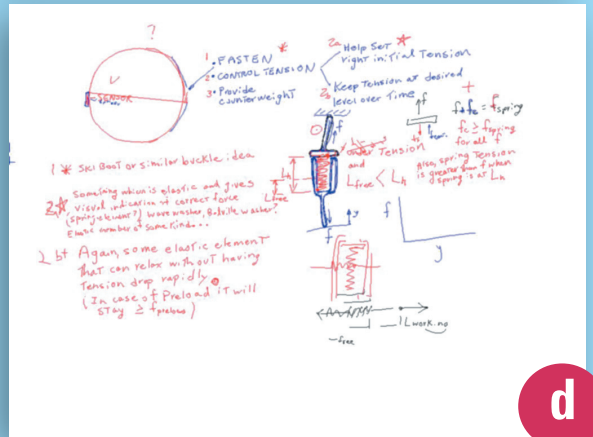 ?
1. FASTEN *
2. CONTROL TENSION
3. Provide
counterweight
2a Help Set *
right initial Tension
2b Keep Tension at desired
level over Time
SENSOR
1 * SKI BOOT or similar buckle idea
2a* Something which is elastic and gives
visual indication of correct force
(spring element?) wave washer, Belleville washer?
Elastic member of some kind...
2 b+ Again, some elastic element
that can relax without having
Tension drop rapidly.
(In case of Preload it will
stay ≥ fpreload)
f
Lh
Lfree
under Tension
and
Lfree < Lh
f
y
+
f
f+fc = fspring
fc ≥ fspring
for all f
also, spring Tension
is greater than f when
spring is at Lh
f
y
free
Lworking
d